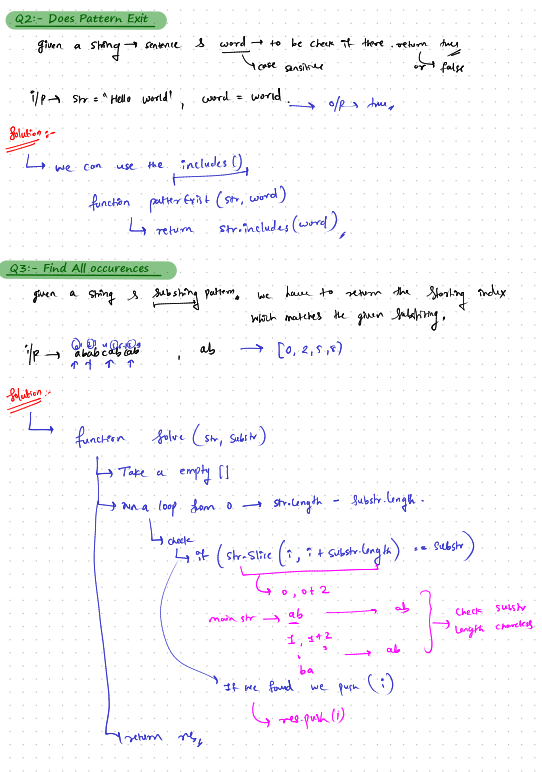 Q2:- Does Pattern Exit
given a string → sentence & word → to be check if there. return true
↳ case sensitive
or ↳ false
i/p → str = "Hello world", word = world. → o/p → true.
Solution :-
↳ we can use the includes()
function patterExist (str, word)
↳ return str.includes(word)
Q3:- Find All occurences
given a string & substring pattern. we have to return the starting index
which matches the given substring.
i/p → ababcabcab , ab → [0, 2, 5, 8)
Solution :-
function solve (str, substr)
→ Take a empty []
→ run a loop from 0 → str.length - substr.length.
↳ check
↳ if (str.slice (i, i + substr.length) == substr)
↳ 0, 0+2
main str → ab → ab
check substr
length characters
1, 1+2
→ ab
ba
→ If we found we push (i)
↳ res.push(i)
→ return res,